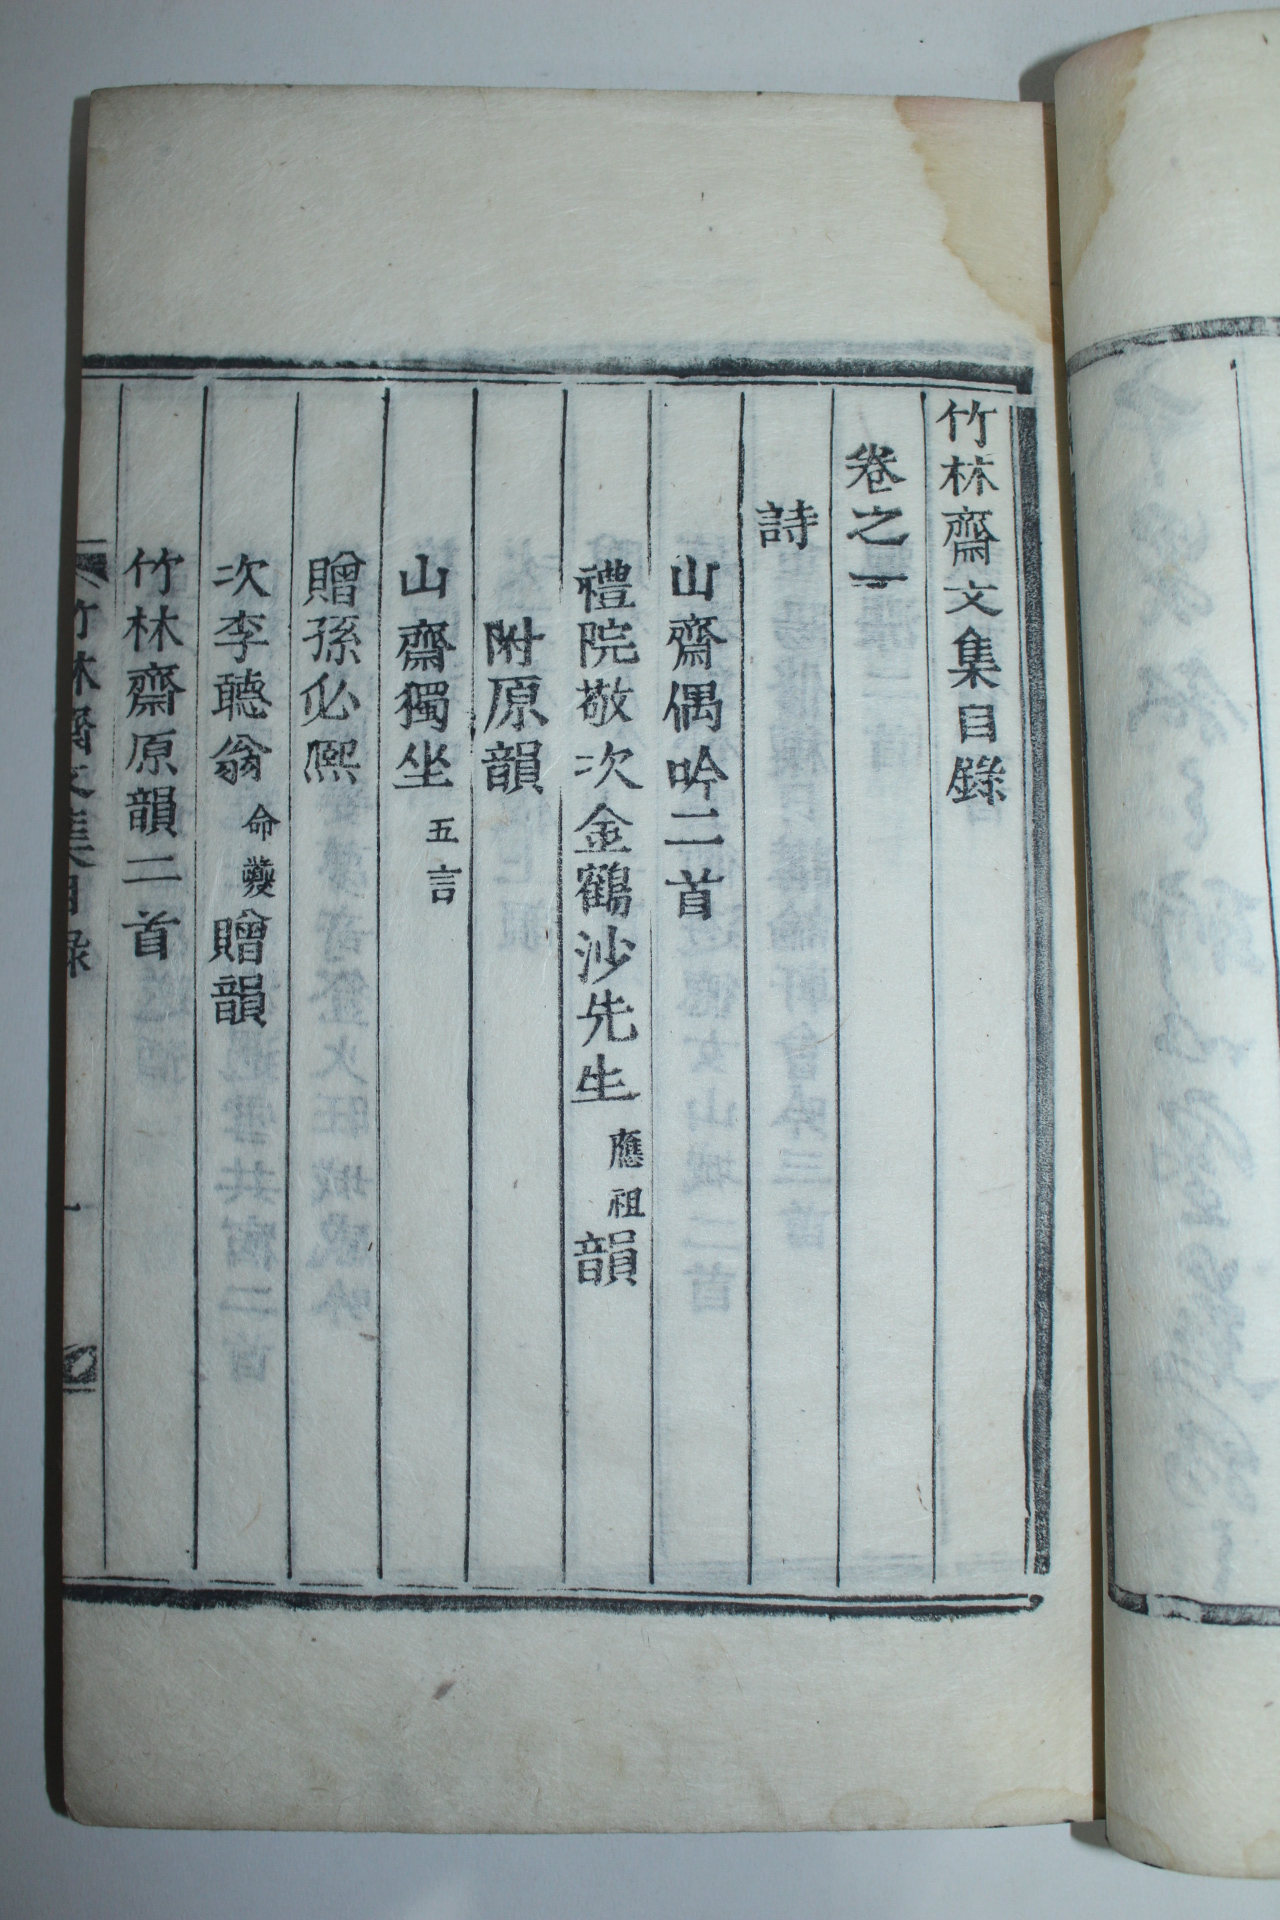 竹林齋文集目錄
卷之一
詩
山齋偶吟二首
禮院敬次金鶴沙先生應祖韻
附原韻
山齋獨坐五言
贈孫必熙
次李聽翁命夔贈韻
竹林齋原韻二首
竹林齋文集目錄 一